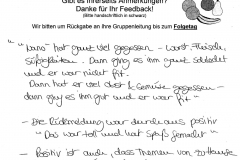 Gibt es Ihrerseits Anmerkungen?
Danke für Ihr Feedback!
(Bitte handschriftlich in schwarz)
Wir bitten um Rückgabe an Ihre Gruppenleitung bis zum Folgetag
hat ganz viel gegessen - Wurst, Fleisch,
Süßigkeiten. Dann ging es ihm ganz schlecht
und er war nicht fit.
Dann hat er viel Obst & Gemüse gegessen -
dann ging es ihm gut und er war fit."
- Die Rückmeldung war durchaus positiv
"Das war toll und hat Spaß gemacht"
- Positiv ist auch, dass Themen von zuhause